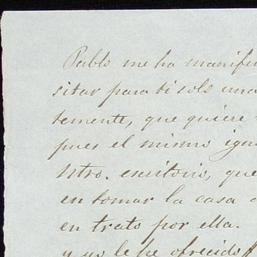 Pablo me ha manifes
sitar para ti solo una
temente, que quiere
pues el mismo igua
Ntro. escritorio, que
en tomar la casa d
en trato por ella.
y yo le he ofrecido